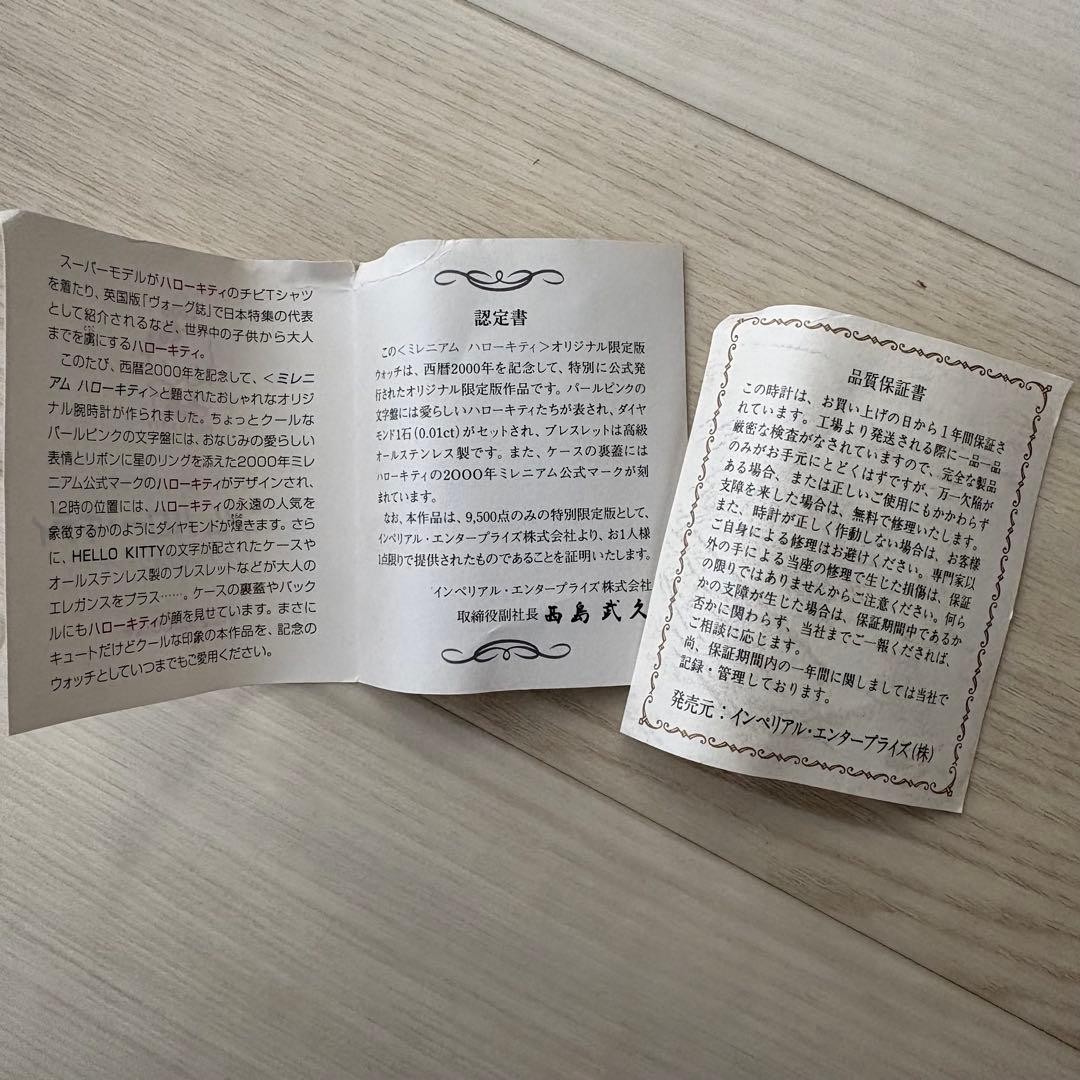 スーパーモデルがハローキティのチビTシャツ
を着たり、英国版「ヴォーグ誌」で日本特集の代表
として紹介されるなど、世界中の子供から大人
までを虜にするハローキティ。
このたび、西暦2000年を記念して、<ミレニ
アム ハローキティ>と題されたおしゃれなオリジ
ナル腕時計が作られました。ちょっとクールな
パールピンクの文字盤には、おなじみの愛らしい
表情とリボンに星のリングを添えた2000年ミレ
ニアム公式マークのハローキティがデザインされ、
12時の位置には、ハローキティの永遠の人気を
象徴するかのようにダイヤモンドが煌きます。さら
に、HELLO KITTYの文字が配されたケースや
オールステンレス製のブレスレットなどが大人の
エレガンスをプラス……。ケースの裏蓋やバック
ルにもハローキティが顔を見せています。まさに
キュートだけどクールな印象の本作品を、記念の
ウォッチとしていつまでもご愛用ください。
認定書
この<ミレニアム ハローキティ>オリジナル限定版
ウォッチは、西暦2000年を記念して、特別に公式発
行されたオリジナル限定版作品です。パールピンクの
文字盤には愛らしいハローキティたちが表され、ダイヤ
モンド1石(0.01ct)がセットされ、ブレスレットは高級
オールステンレス製です。また、ケースの裏蓋には
ハローキティの2000年ミレニアム公式マークが刻
まれています。
なお、本作品は、9,500点のみの特別限定版として、
インペリアル・エンタープライズ株式会社より、お1人様
1点限りで提供されたものであることを証明いたします。
インペリアル・エンタープライズ株式会社
取締役副社長 西島武久
品質保証書
この時計は、お買い上げの日から1年間保証さ
れています。工場より発送される際に一品一品
厳密な検査がなされていますので、完全な製品
のみがお手元にとどくはずですが、万一欠陥が
ある場合、または正しいご使用にもかかわらず
支障を来した場合は、無料で修理いたします。
また、時計が正しく作動しない場合は、お客様
ご自身による修理はお避けください。専門家以
外の手による当座の修理で生じた損傷は、保証
の限りではありませんからご注意ください。何ら
かの支障が生じた場合は、保証期間中であるか
否かに関わらず、当社までご一報くだされば、
ご相談に応じます。
尚、保証期間内の一年間に関しましては当社で
記録・管理しております。
発売元：インペリアル・エンタープライズ(株)